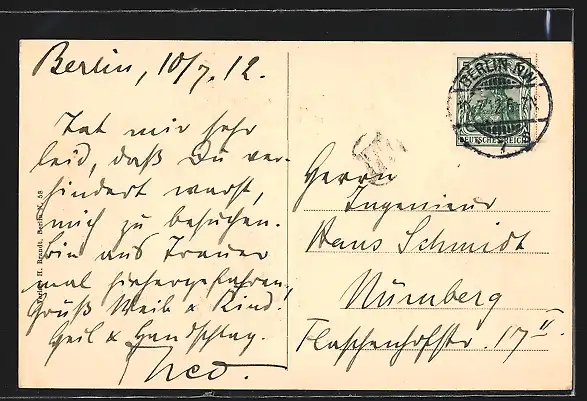 Berlin, 10/7.12.
Tat mir sehr
leid, daß Du ver-
hindert warst,
mich zu besuchen.
Bin aus Trauer
mal hierhergefahren,
Gruß Weib & Kind.
Heil & Handschlag.
BERLIN NW.
DEUTSCHES REICH
Herrn
Ingenieur
Hans Schmidt
Nürnberg
Flaschenhofstr. 17 II.
Verlag H. Brandt, Berlin N. 58